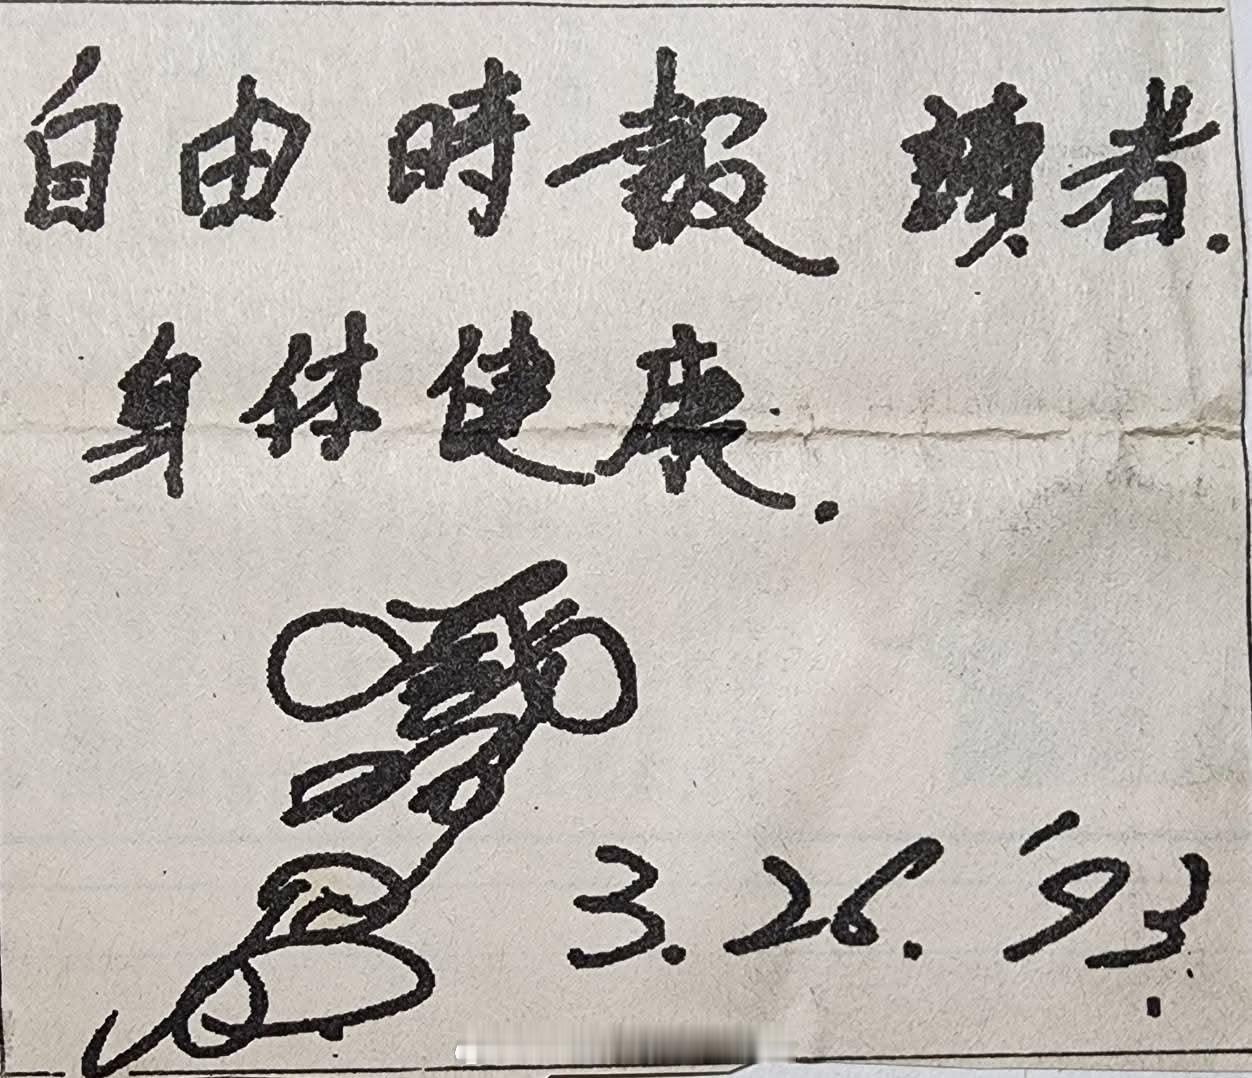 自由時報 讀者.
身体健康.
3.26.'93